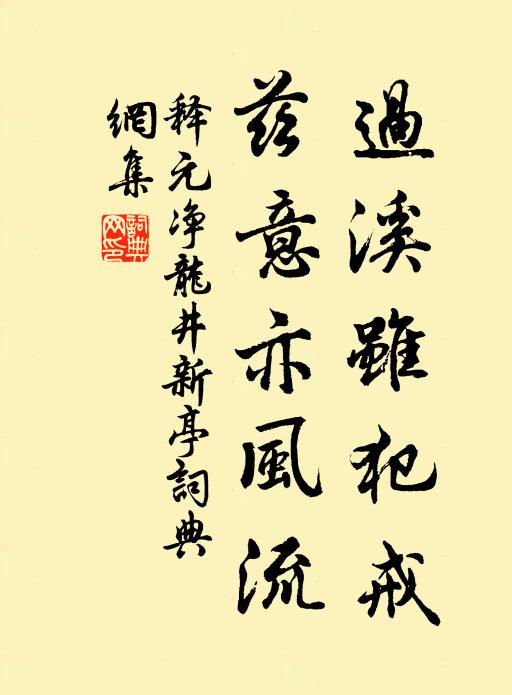 過溪雖犯戒
茲意亦風流
释元净龍井新亭詞典
網集
詞典
网印